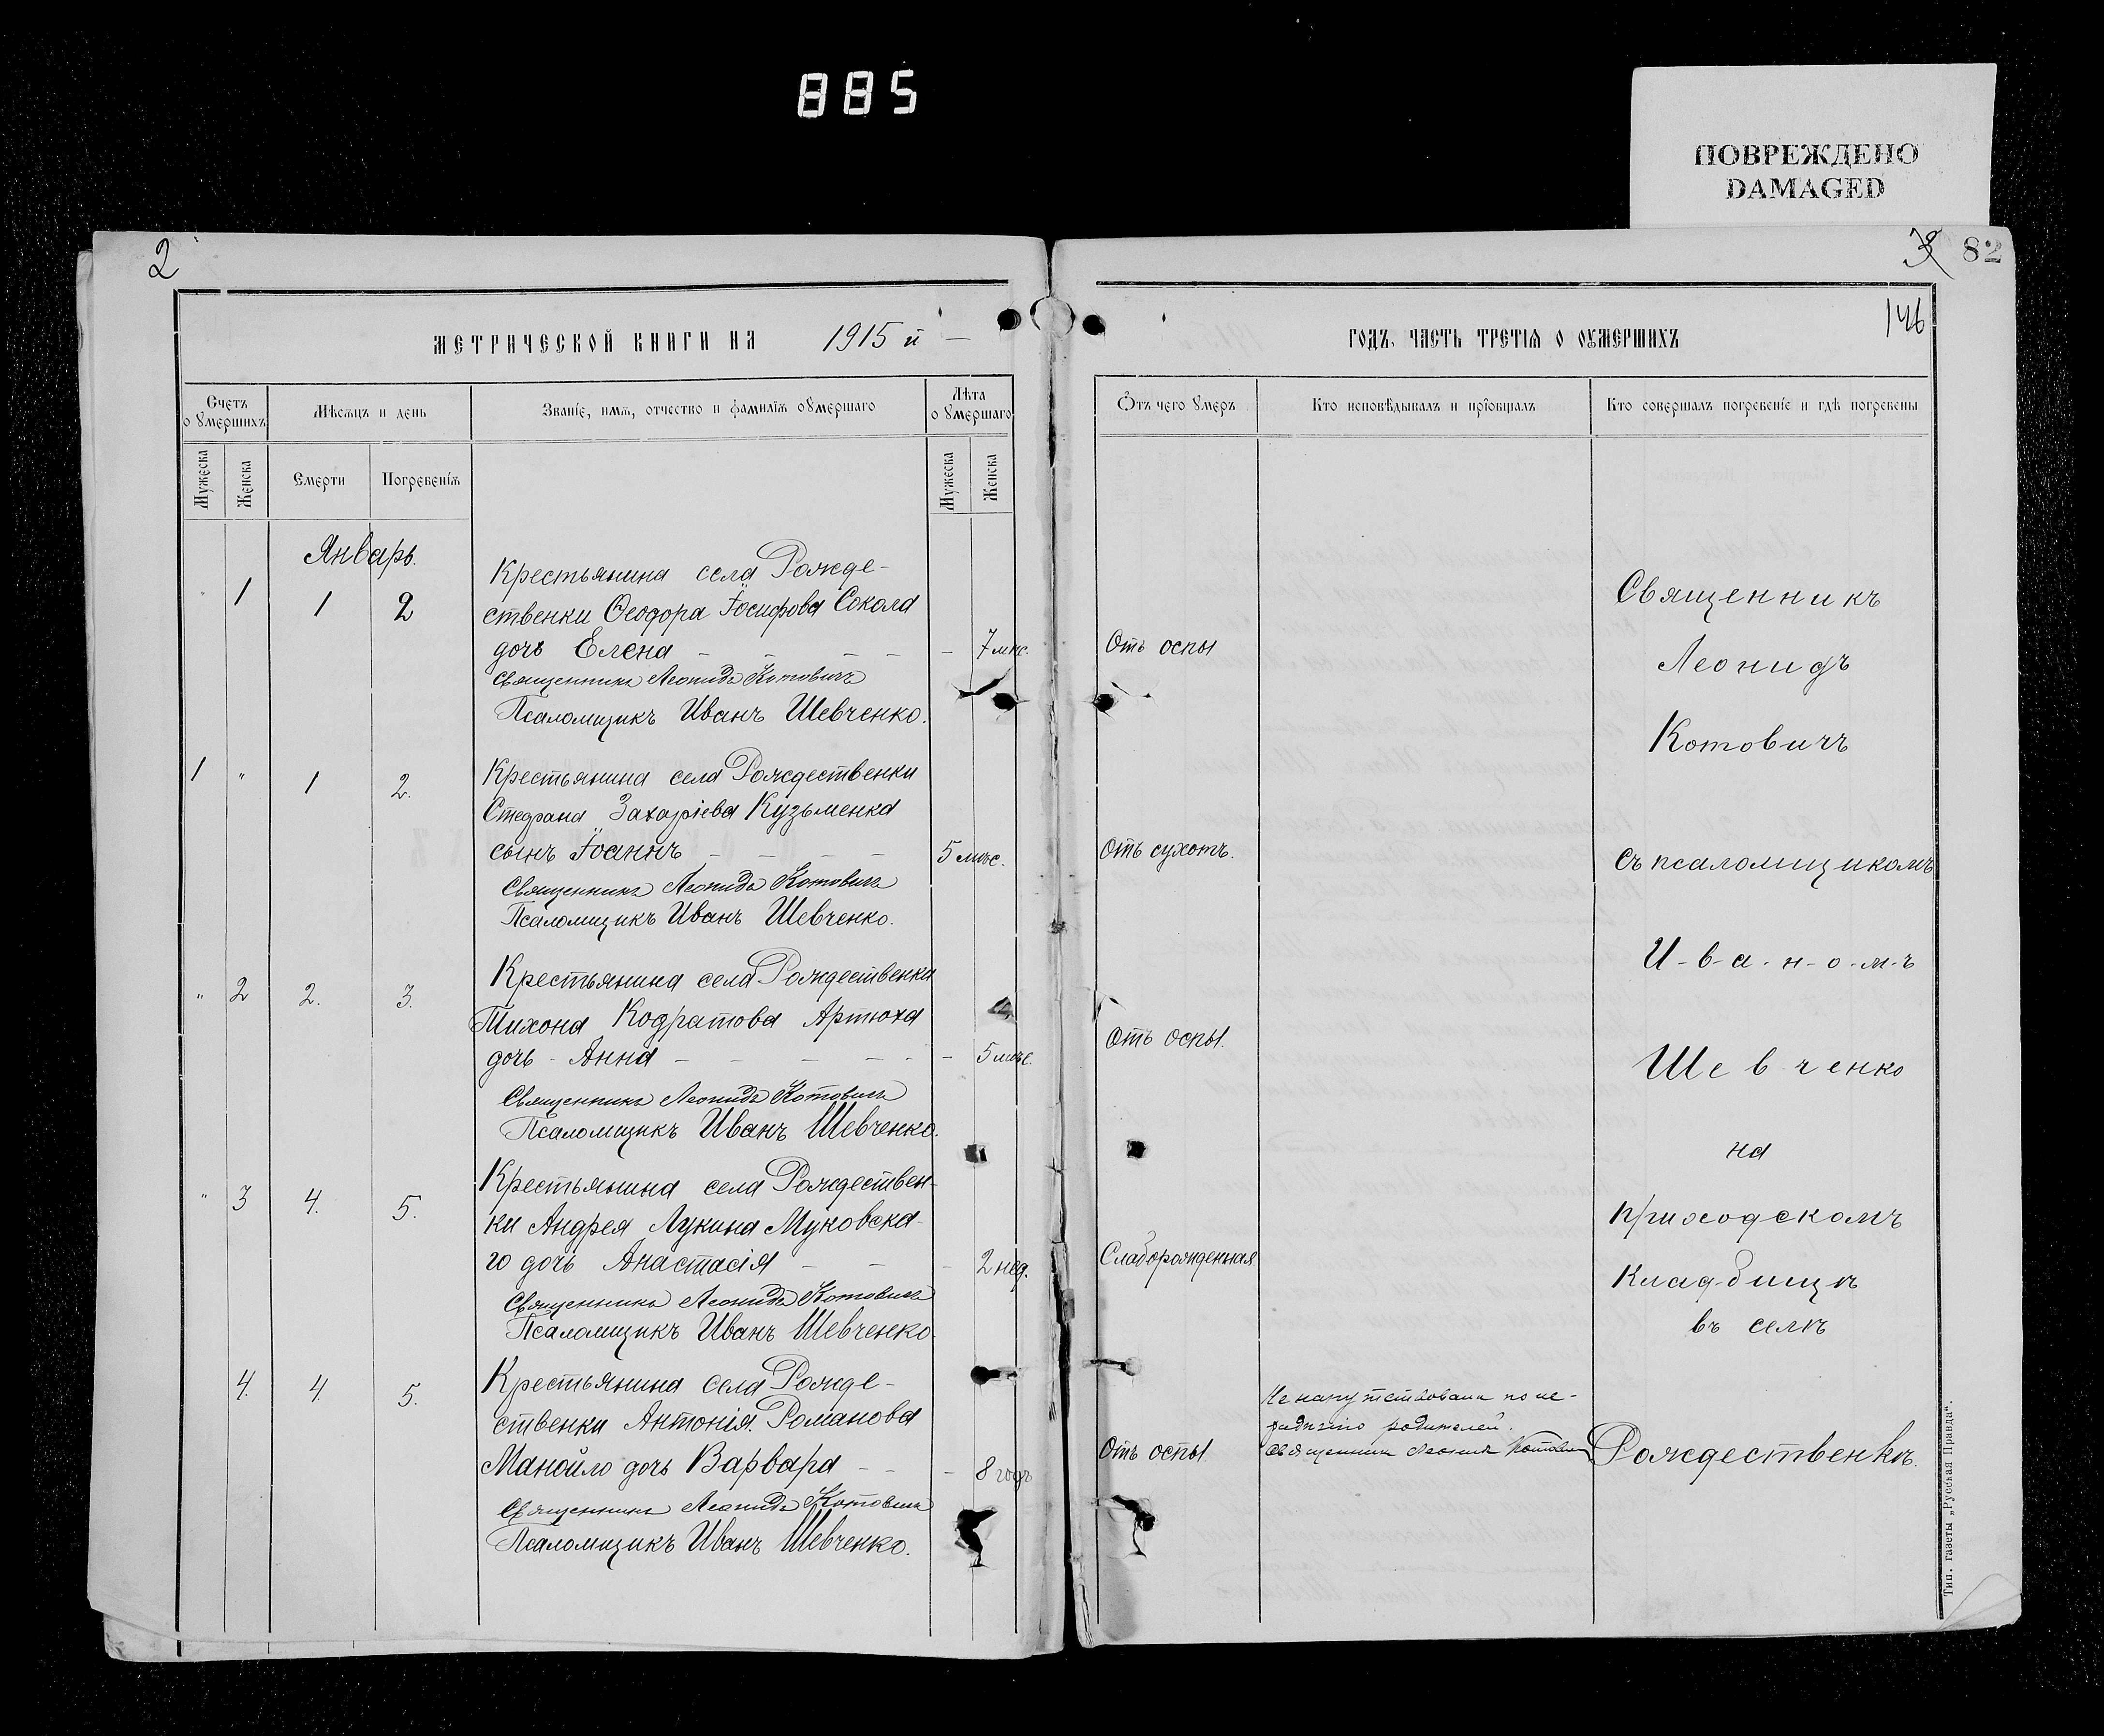 885
ПОВРЕЖДЕНО
DAMAGED
2
82
146
МЕТРИЧЕСКОЙ КНИГИ НА 1915 й
ГОДЪ, ЧАСТЬ ТРЕТІѦ О ОУМЕРШИХЪ
Счетъ о умершихъ
Мѣсѧцъ и день
Званіе, имѧ, отчество и фамиліѧ оумершаго
Лѣта оумершаго
Ѿтъ чего умеръ
Кто исповѣдывалъ и пріобщалъ
Кто совершалъ погребеніе и гдѣ погребены
Мужеска
Женска
Смерти
Погребеніѧ
Мужеска
Женска
Январь.
" 1 1 2
Крестьянина села Рожде-
ственки Ѳеодора Іосифова Сокола
дочь Елена – – – – – 7 мѣс.
Отъ оспы
Священникъ Леонидъ Котовичъ
Псаломщикъ Иванъ Шевченко.
1 " 1 2.
Крестьянина села Рождественки
Стефана Захаріева Кузьменка
сынъ Іоаннъ – – – – 5 мѣс.
Отъ сухотъ.
Священникъ Леонидъ Котовичъ
Псаломщикъ Иванъ Шевченко.
" 2 2. 3.
Крестьянина села Рождественки
Тихона Кодратова Артюха
дочь - Анна – – – – - – 5 мѣс.
Отъ оспы.
Священникъ Леонидъ Котовичъ
Псаломщикъ Иванъ Шевченко.
" 3 4. 5.
Крестьянина села Рождествен-
ки Андрея Лукина Муковска-
го дочь Анастасія – – – 2 нед.
Слаборожденная
Священникъ Леонидъ Котовичъ
Псаломщикъ Иванъ Шевченко.
4. 4. 5.
Крестьянина села Рожде-
ственки Антонія Романова
Манойло дочь Варвара – – – 8 годъ
Отъ оспы.
Священникъ Леонидъ Котовичъ
Псаломщикъ Иванъ Шевченко.
Не напутствована по не-
родителей.
Священникъ Леонидъ Котовичъ
Священникъ
Леонидъ
Котовичъ
съ псаломщикомъ
И-в-а-н-о-м-ъ
Шевченко
на
приходскомъ
кладбищѣ
въ селѣ
Рождественкѣ.
Тип. газеты „Русская Правда".